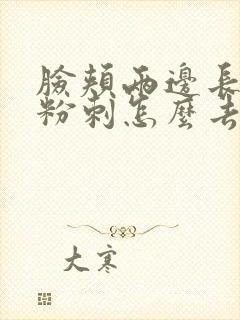 臉頰兩邊長
粉刺怎麼去
大寒